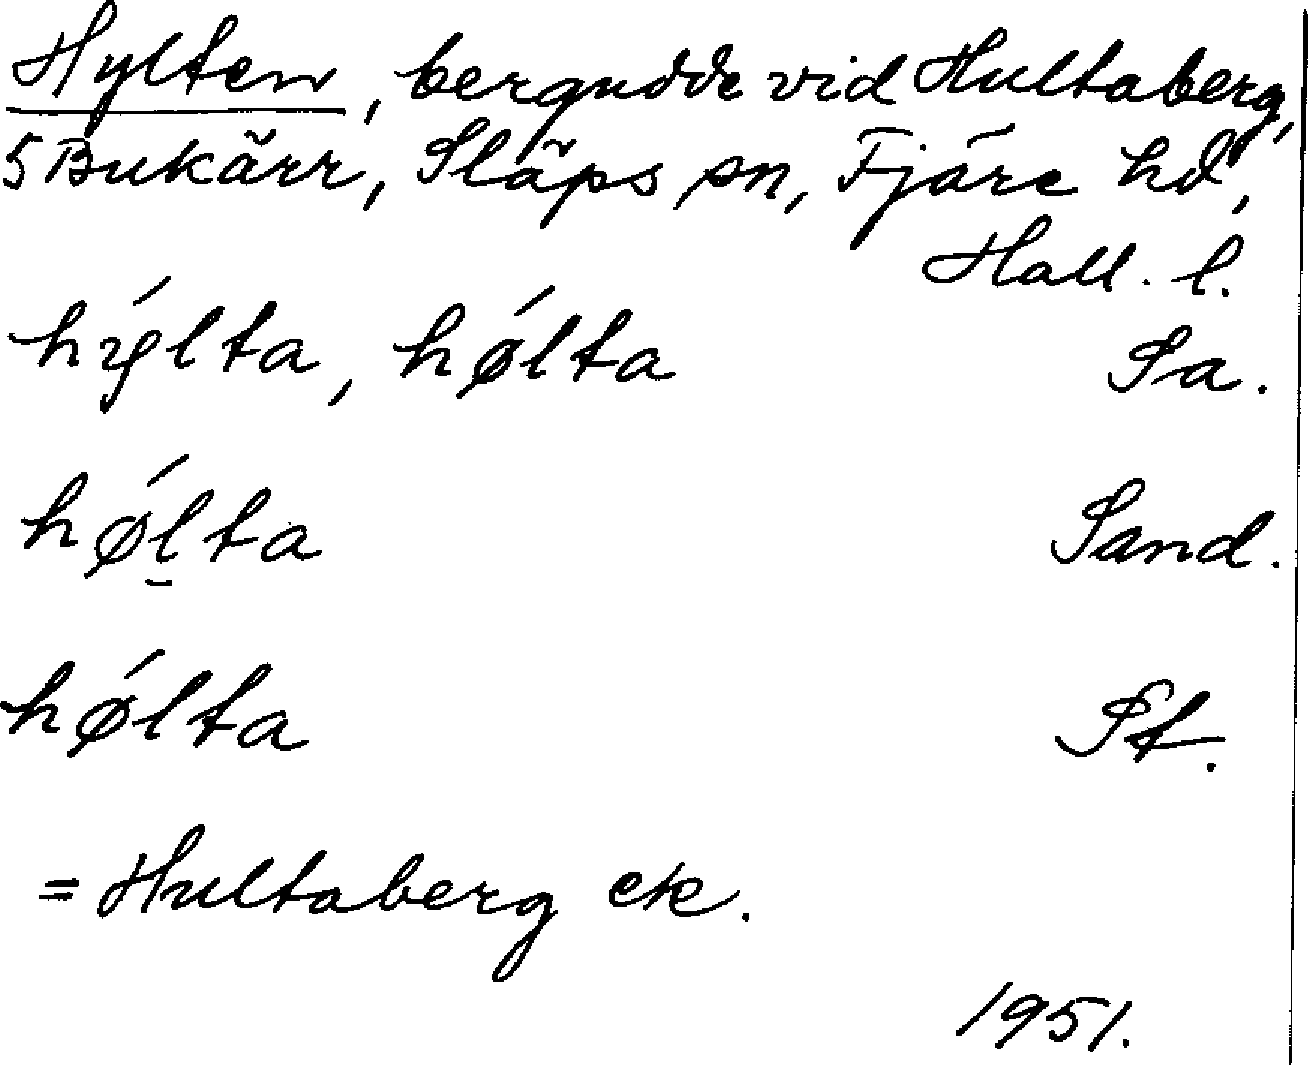 Hylten, bergudde vid Hultaberg,
5 Bukärr, Släps sn, Fjäre hd,
Hall. l.
hýlta, hǿlta Sa.
hǿl̲ta Sand.
hǿlta St.
= Hultaberg ek.
1951.